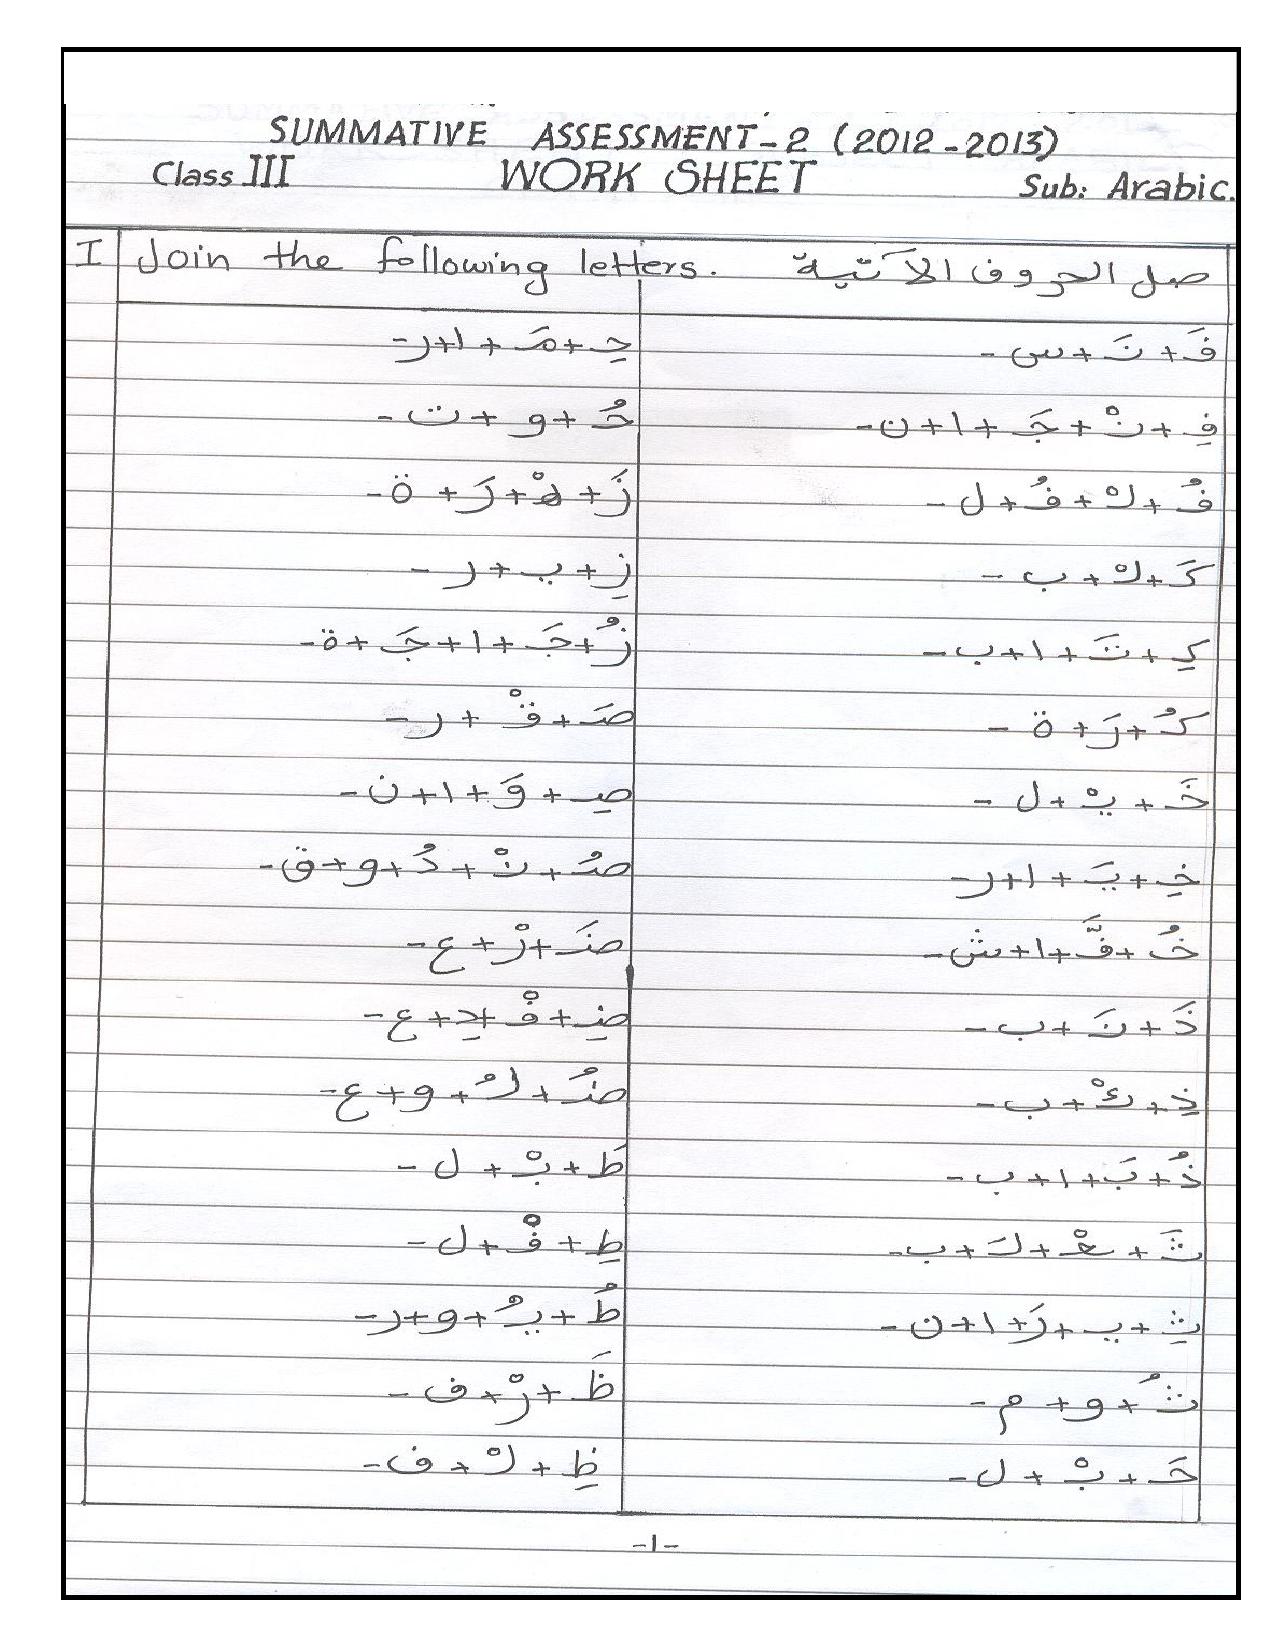 SUMMATIVE ASSESSMENT-2 (2012-2013)
Class III WORK SHEET Sub: Arabic.
I Join the following letters. صل الحروف الآتية
فَ + رَ + س -
فِ + نْ + جَ + ا + ن -
فُ + لْ + فُ + ل -
كَ + لْ + ب -
كِ + تَ + ا + ب -
كُ + رَ + ة -
خَ + يْ + ل -
خِ + يَ + ا + ر -
خُ + فَّ + ا + ش -
ذَ + نَ + ب -
ذِ + ئْ + ب -
ذُ + بَ + ا + ب -
ثَ + عْ + لَ + ب -
ثِ + ي + رَ + ا + ن -
ثُ + و + م -
حَ + بْ + ل -
حِ + مَ + ا + ر -
حُ + و + ت -
زَ + هْ + رَ + ة -
زِ + ي + ر -
زُ + جَ + ا + جَ + ة -
صَ + قْ + ر -
صِ + وَ + ا + ن -
صُ + نْ + دُ + و + ق -
ضَ + رْ + ع -
ضِ + فْ + دِ + ع -
ضُ + لُ + و + ع -
طَ + بْ + ل -
طِ + فْ + ل -
طُ + يُ + و + ر -
ظَ + رْ + ف -
ظِ + لْ + ف -
-1-